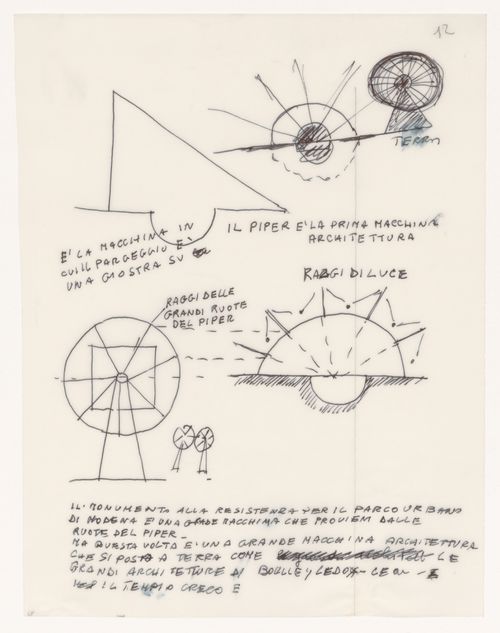 12
TERRA
IL PIPER E' LA PRIMA MACCHINA
ARCHITETTURA
E' LA MACCHINA IN
CUI IL PARGEGGIO E'
UNA GIOSTRA SU
RAGGI DI LUCE
RAGGI DELLE
GRANDI RUOTE
DEL PIPER
IL MONUMENTO ALLA RESISTENZA PER IL PARCO URBANO
DI MODENA E' UNA GRADE MACCHIMA CHE PROVIEM DALLE
RUOTE DEL PIPER -
MA QUESTA VOLTA E' UNA GRANDE MACCHINA ARCHITETTURA
CHE SI POSTA A TERRA COME LE
GRANDI ARCHITETTURE DI BOULLEY LEDOX -
IL TEMPIO GRECO E